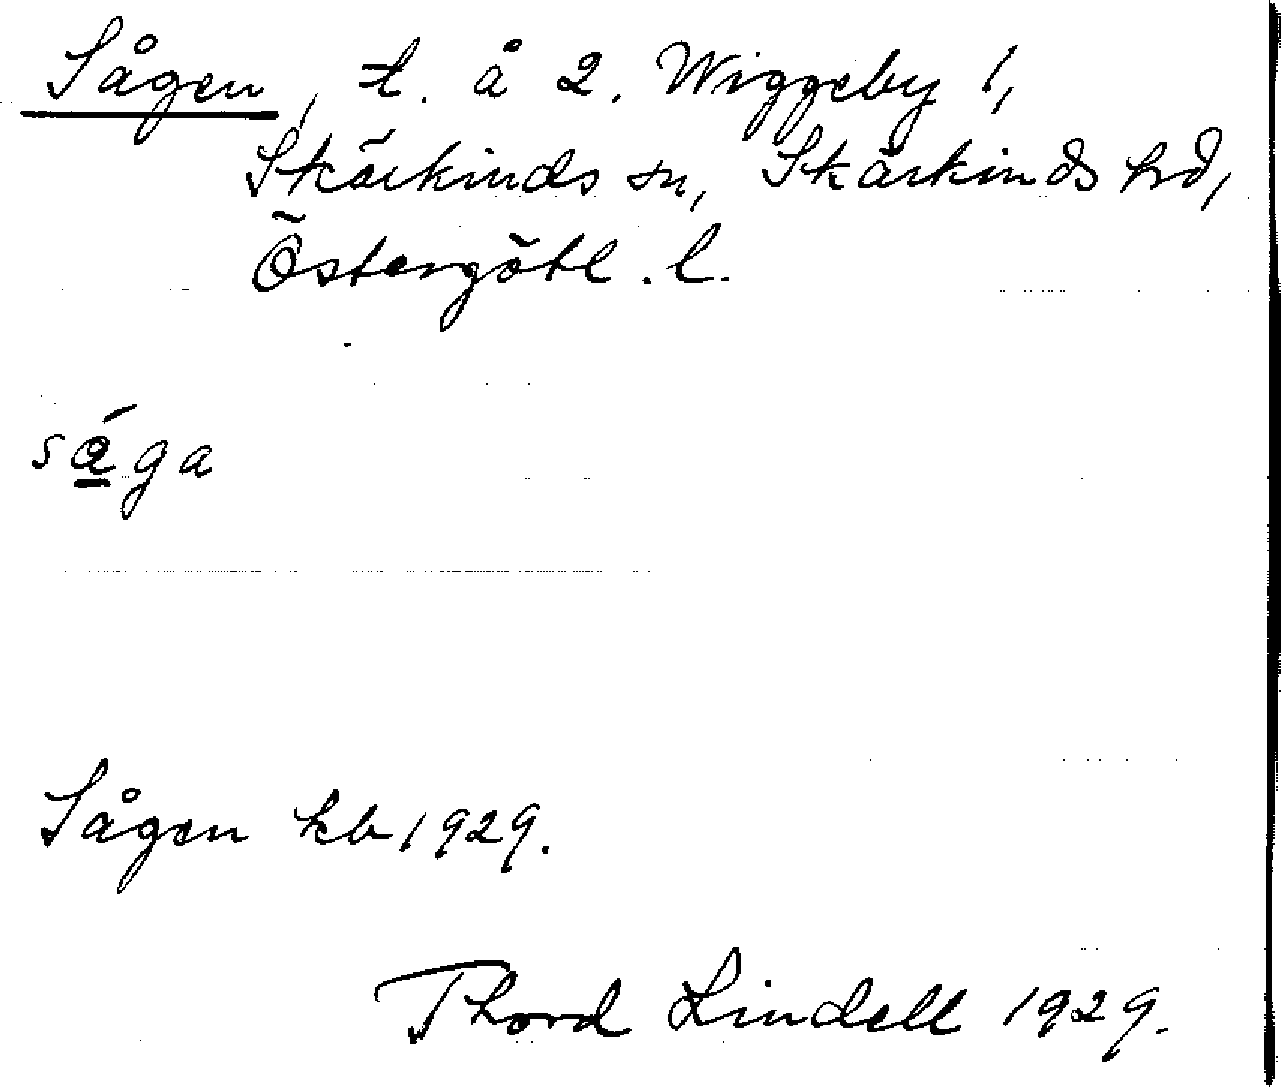 Sågen, t. å 2. Wiggeby 1,
Skärkinds sn, Skärkinds hd,
Östergötl. l.
såga
Sågen kb 1929.
Thord Lindell 1929.